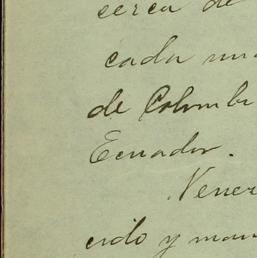 cerca de
cada un
de Colombi
Ecuador.
Vener
cido y man